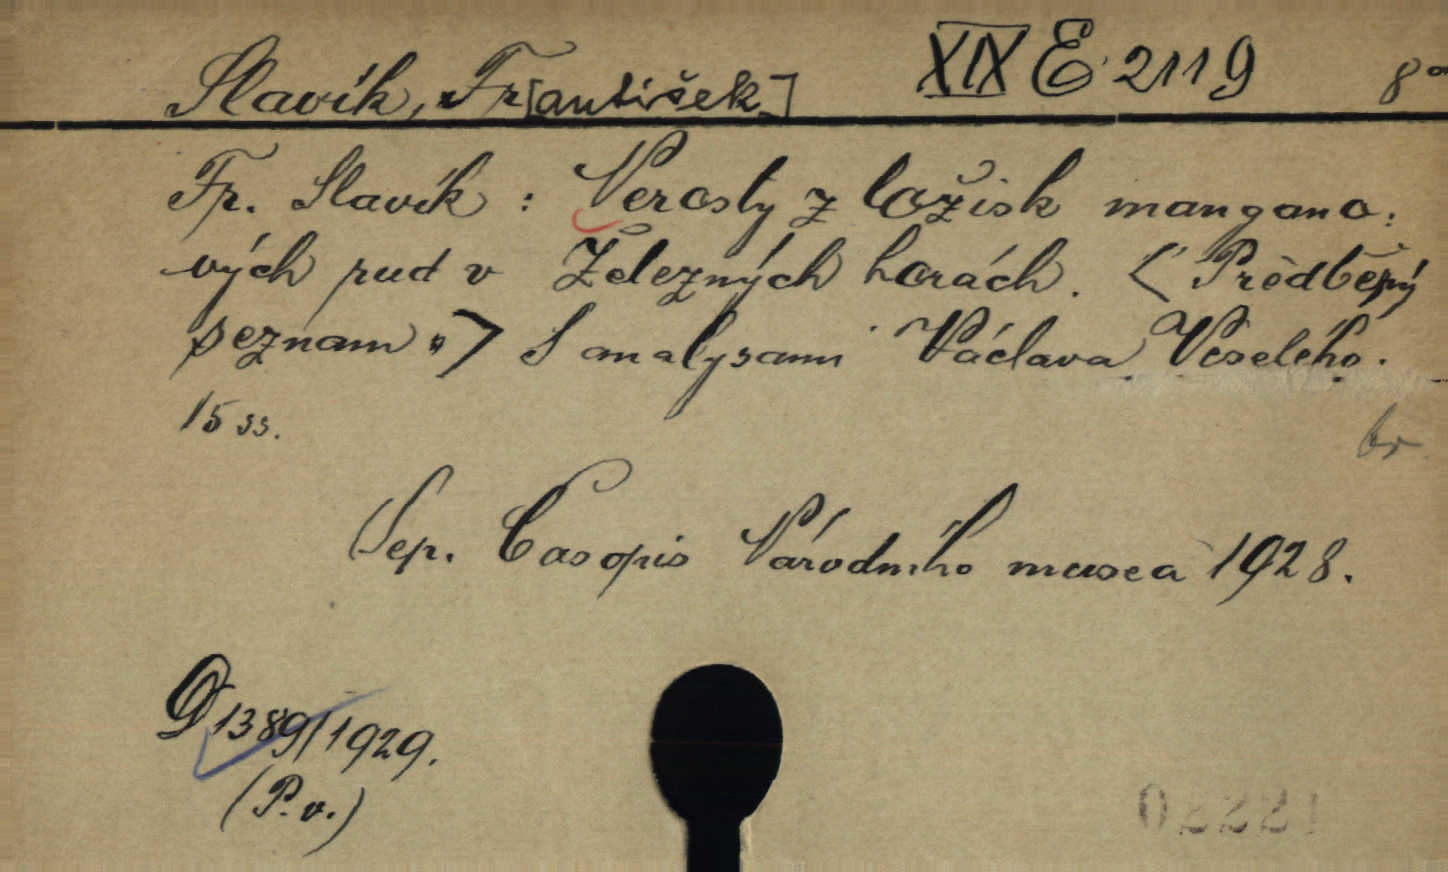 Slavík, Fr[antišek] XIX E 2119 8°
Fr. Slavík : Nerosty z ložisk mangano:
vých rud v Železných horách. < Předběžný
seznam. > S analysami Václava Veselého.
15 ss.
br.
Sep. Časopis Národního musea 1928.
D 1389/1929.
(P. v.)
02221